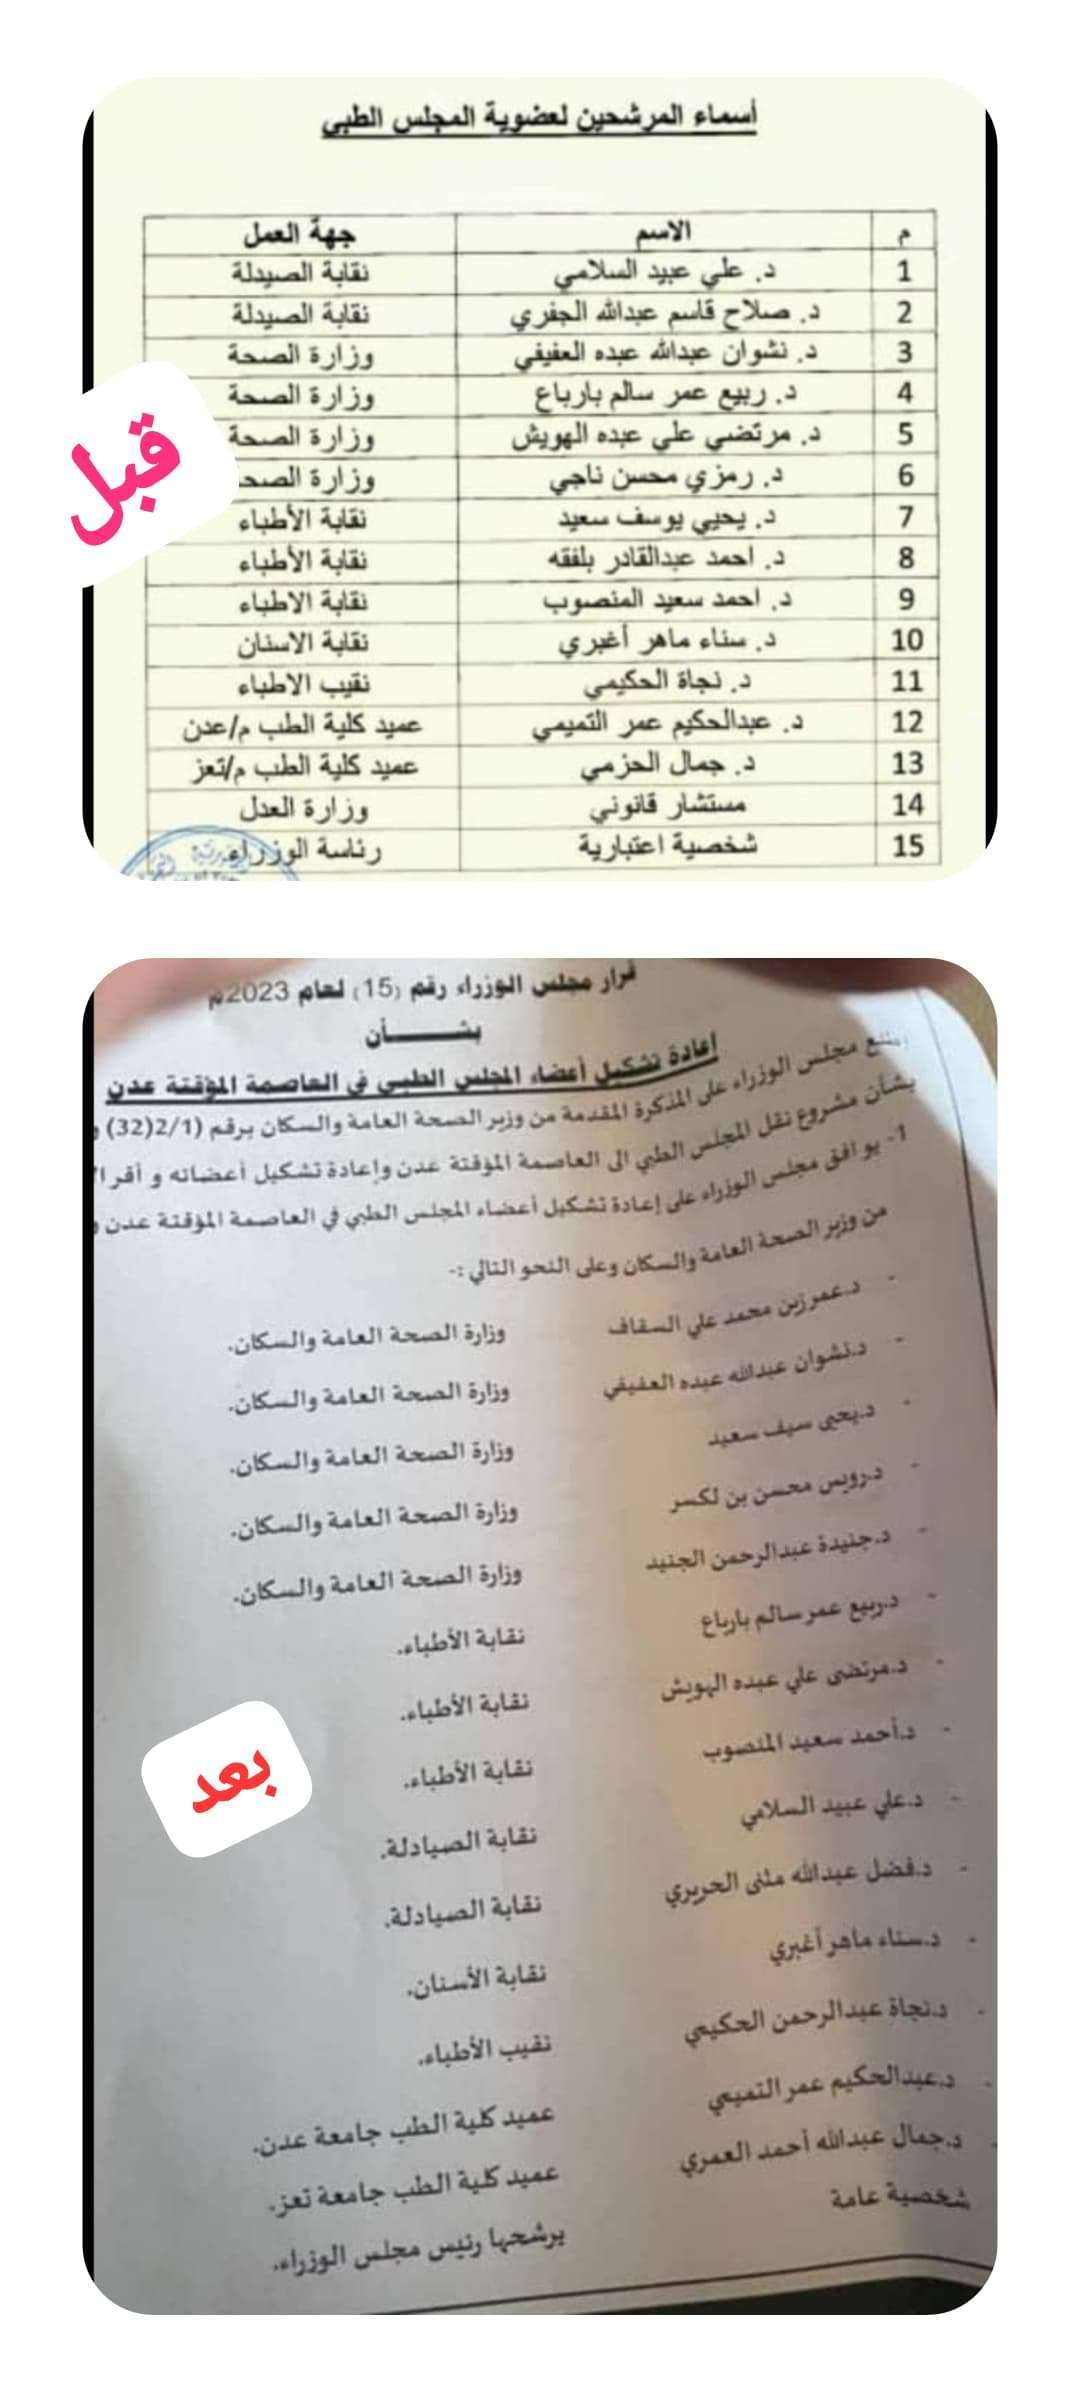 أسماء المرشحين لعضوية المجلس الطبي
م الاسم جهة العمل
1 د. علي عبيد السلامي نقابة الصيدلة
2 د. صلاح قاسم عبدالله الجفري نقابة الصيدلة
3 د. نشوان عبدالله عبده العفيفي وزارة الصحة
4 د. ربيع عمر سالم بارباع وزارة الصحة
5 د. مرتضي علي عبده الهويش وزارة الصحة
6 د. رمزي محسن ناجي وزارة الصحة
7 د. يحيي يوسف سعيد نقابة الأطباء
8 د. احمد عبدالقادر بلفقه نقابة الأطباء
9 د. احمد سعيد المنصوب نقابة الاطباء
10 د. سناء ماهر أغبري نقابة الاسنان
11 د. نجاة الحكيمي نقيب الاطباء
12 د. عبدالحكيم عمر التميمي عميد كلية الطب م/عدن
13 د. جمال الحزمي عميد كلية الطب م/تعز
14 مستشار قانوني وزارة العدل
15 شخصية اعتبارية رئاسة الوزراء
قبل
قرار مجلس الوزراء رقم (15) لعام 2023م
بشـــــأن
إعادة تشكيل أعضاء المجلس الطبي في العاصمة المؤقتة عدن
مجلس الوزراء على المذكرة المقدمة من وزير الصحة العامة والسكان برقم (2/1(32) و
بشأن مشروع نقل المجلس الطبي الى العاصمة المؤقتة عدن وإعادة تشكيل أعضائه و أقر ا
1- يوافق مجلس الوزراء على إعادة تشكيل أعضاء المجلس الطبي في العاصمة المؤقتة عدن و
من وزير الصحة العامة والسكان وعلى النحو التالي :-
- د.عمر زين محمد علي السقاف وزارة الصحة العامة والسكان.
- د.نشوان عبدالله عبده العفيفي وزارة الصحة العامة والسكان.
- د.يحيى سيف سعيد وزارة الصحة العامة والسكان.
- د.رويس محسن بن لكسر وزارة الصحة العامة والسكان.
- د.جنيدة عبدالرحمن الجنيد وزارة الصحة العامة والسكان.
- د.ربيع عمر سالم بارباع نقابة الأطباء.
- د.مرتضى علي عبده الهويش نقابة الأطباء.
- د.أحمد سعيد المنصوب نقابة الأطباء.
- د.علي عبيد السلامي نقابة الصيادلة.
- د.فضل عبدالله مثنى الحريري نقابة الصيادلة.
- د.سناء ماهر أغبري نقابة الأسنان.
- د.نجاة عبدالرحمن الحكيمي نقيب الأطباء.
- د.عبدالحكيم عمر التميمي عميد كلية الطب جامعة عدن.
- د.جمال عبدالله أحمد العمري عميد كلية الطب جامعة تعز.
شخصية عامة يرشحها رئيس مجلس الوزراء.
بعد